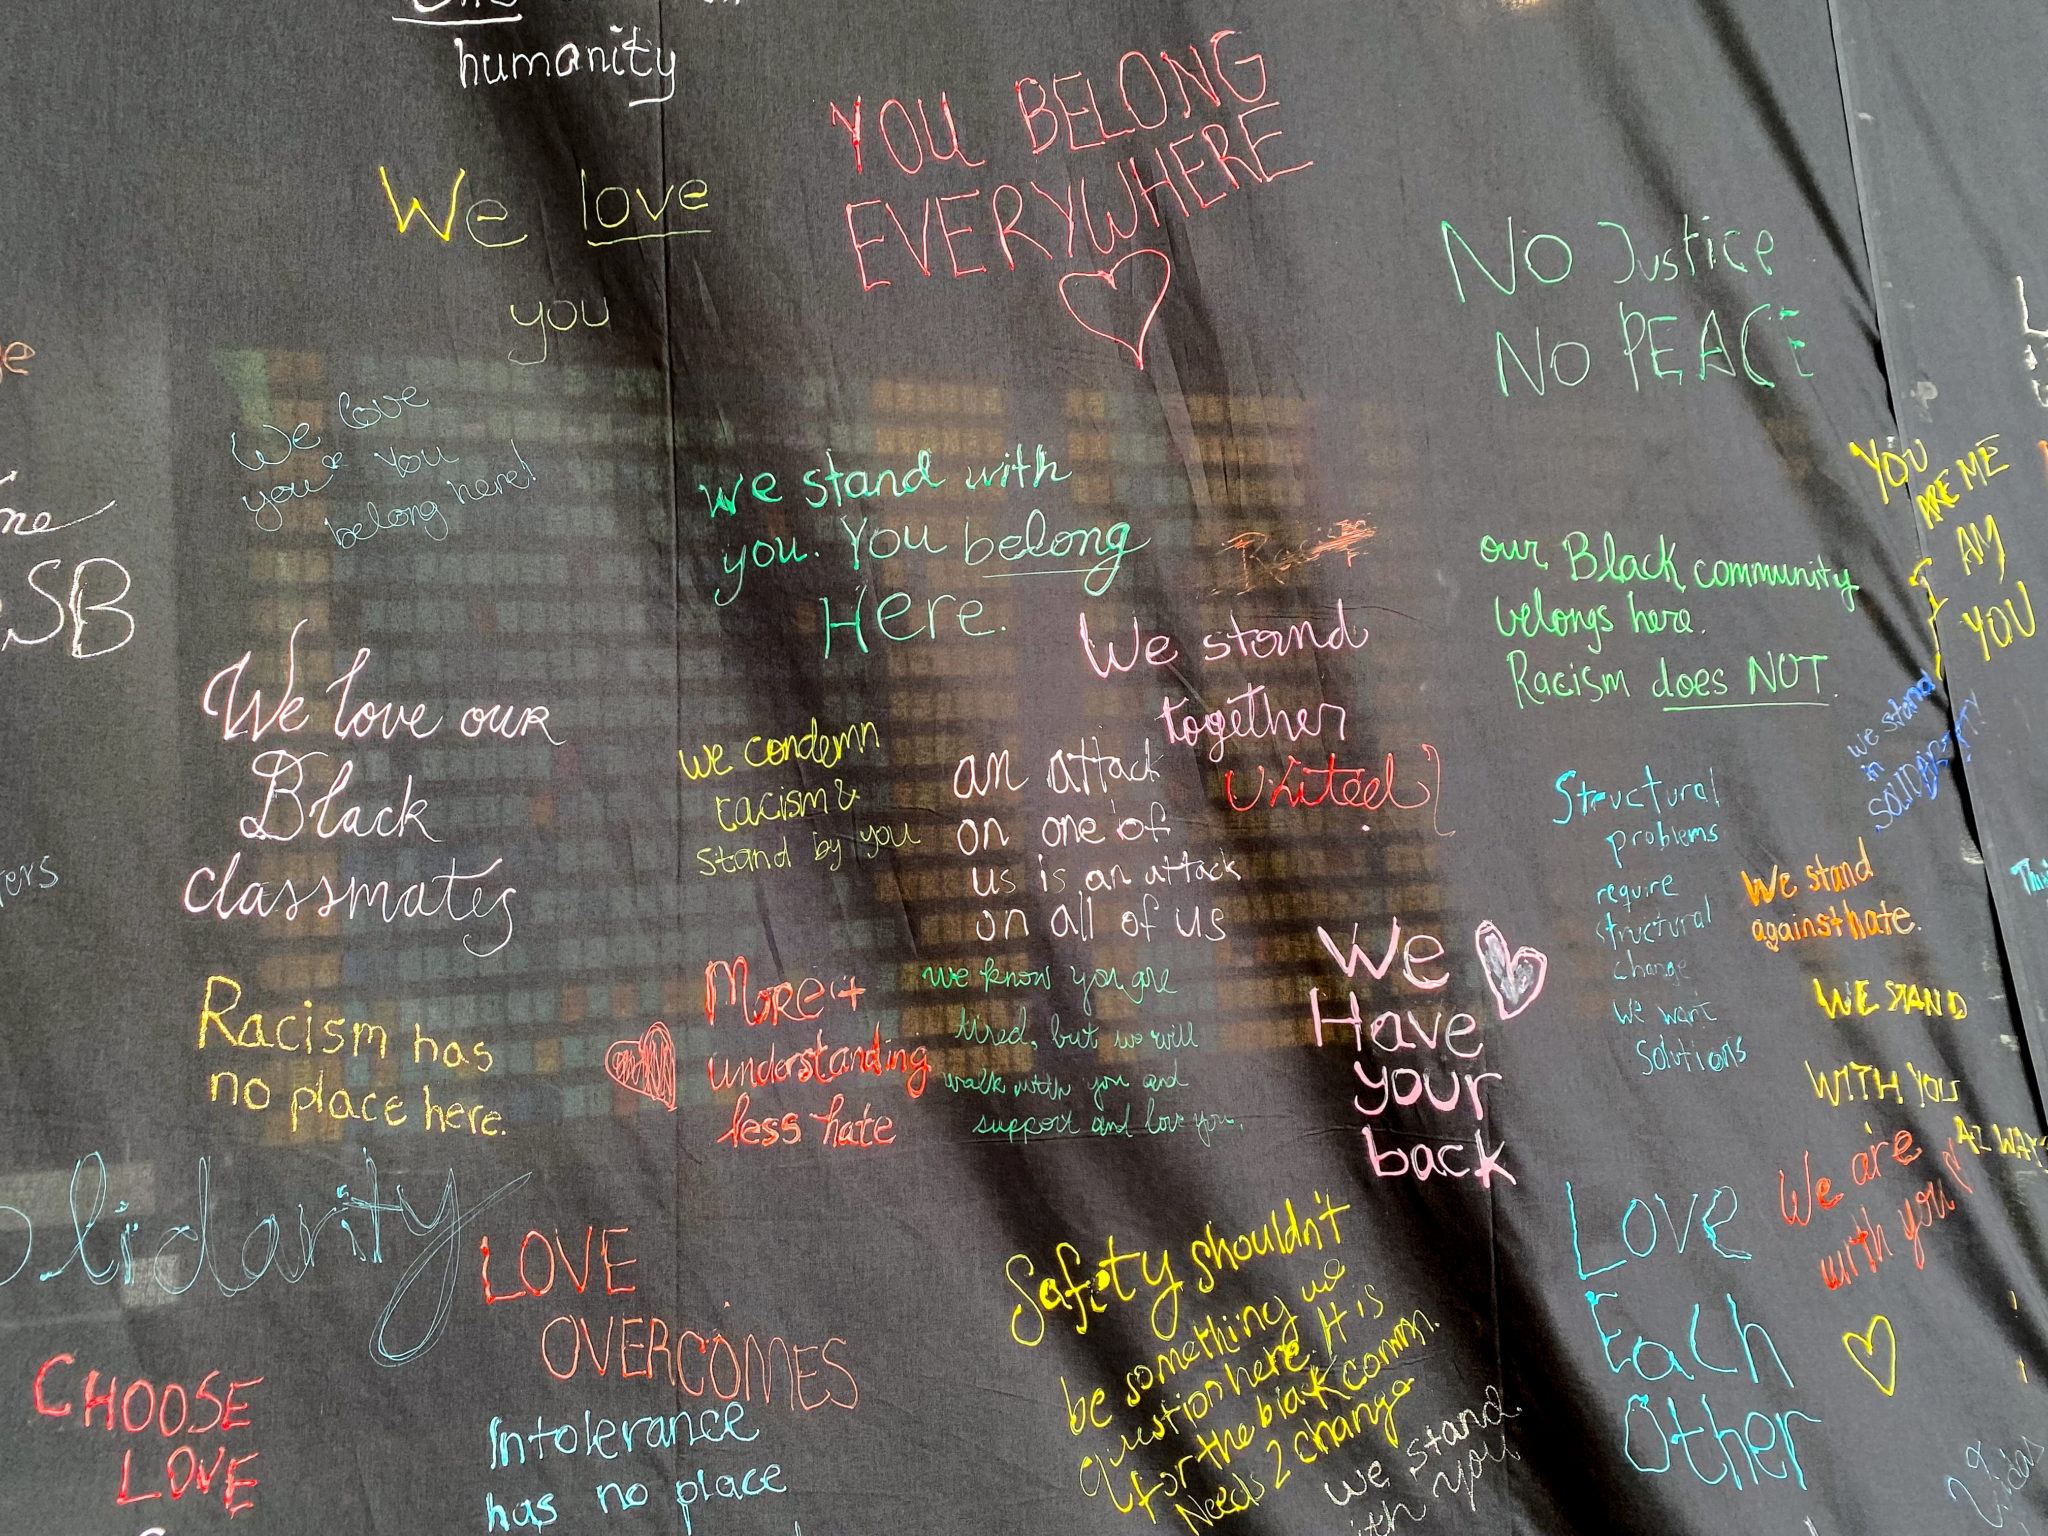 humanity
YOU BELONG
EVERYWHERE
We love
you
No Justice
No PEACE
We love
you & You
belong here!
we stand with
you. You belong
Here.
YOU
ARE ME
I AM
YOU
our Black community
belongs here.
Racism does NOT.
SB
We stand
together
United
We love our
Black
classmates
we condemn
racism &
stand by you
an attack
on one of
us is an attack
on all of us
we stand
in
SOLIDARITY
Structural
problems
require
structural
change
we want
solutions
We stand
against hate.
We
Have
your
back
WE STAND
WITH YOU
ALWAYS
Racism has
no place here.
More
understanding
less hate
we know you are
tired, but we will
walk with you and
support and love you.
We are
with you
olidarity
LOVE
OVERCOMES
Love
Each
Other
Safety shouldn't
be something we
question here. It is
for the black comm.
Needs 2 change
CHOOSE
LOVE
Intolerance
has no place
we stand
with you